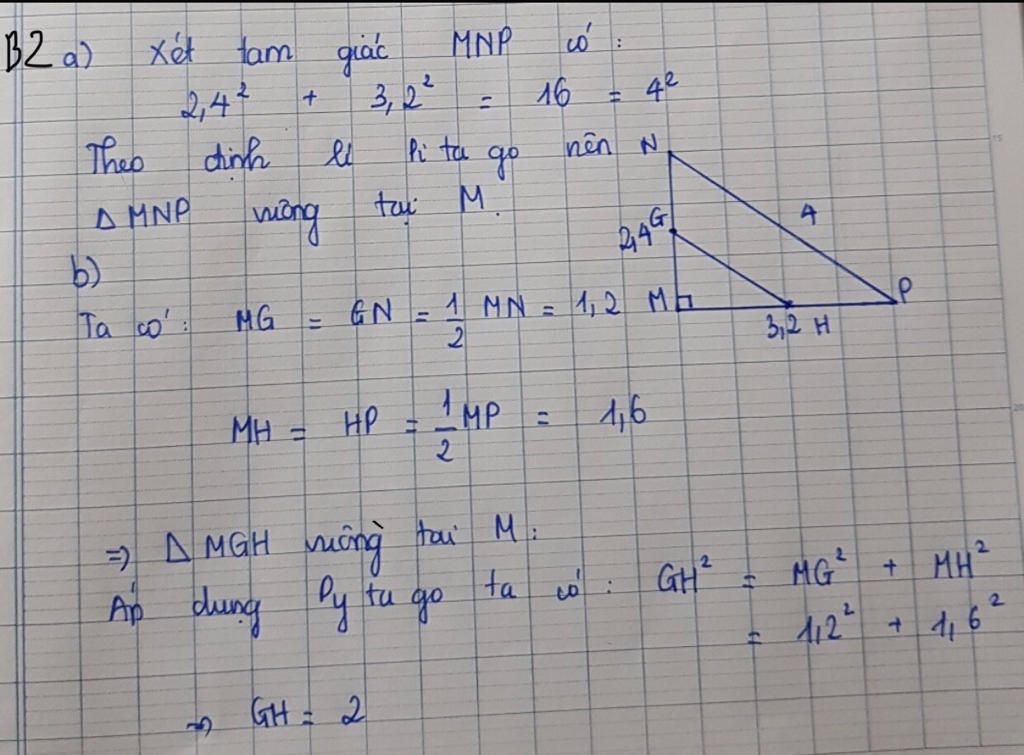 B2 a) Xét tam giác MNP có:
2,4² + 3,2² = 16 = 4²
Theo định lí Pi ta go nên
Δ MNP vuông tại M.
N
4
2,4 G
M
P
3,2 H
b)
Ta có: MG = GN = 1/2 MN = 1,2
MH = HP = 1/2 MP = 1,6
=> Δ MGH vuông tại M:
Áp dụng Py ta go ta có: GH² = MG² + MH²
= 1,2² + 1,6²
=> GH = 2